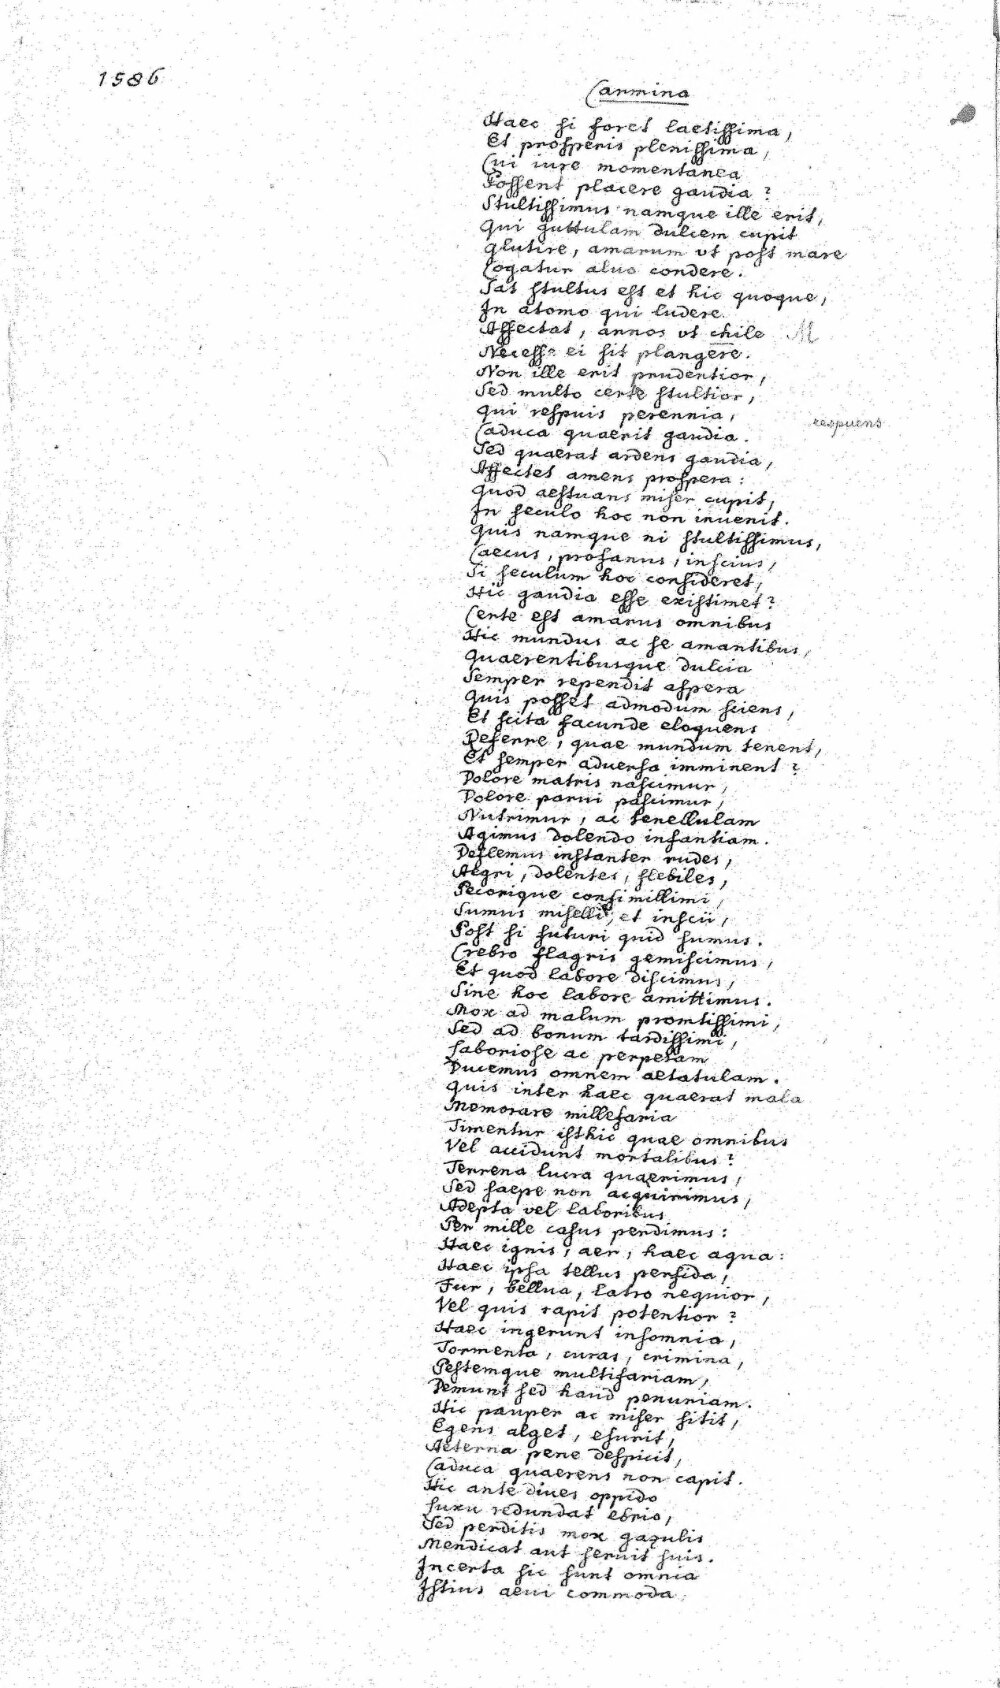 1586
Carmina
Haec si foret laetissima,
Et prosperis plenissima,
Cui iure momentanea
Possent placere gaudia?
Stultissimus namque ille erit,
Qui guttulam dulcem cupit
Glutire, amarum vt post mare
Cogatur aluo condere.
Sat stultus est et hic quoque,
In atomo qui ludere
Affectat, annos vt chile M
Necesse ei sit plangere.
Non ille erit prudentior,
Sed multo certe stultior,
Qui respuis perennia, respuens
Caduca quaerit gaudia.
Sed quaerat ardens gaudia,
Affectet amens prospera:
Quod aestuans miser cupit,
In seculo hoc non inuenit.
Quis namque ni stultissimus,
Caecus, profanus, inscius,
Si seculum hoc consideret,
Hic gaudia esse existimet?
Certe est amarus omnibus
Hic mundus ac se amantibus,
Quaerentibusque dulcia
Semper rependit aspera
Quis posset admodum sciens,
Et scita facunde eloquens
Referre, quae mundum tenent,
Et semper aduersa imminent?
Dolore matris nascimur,
Dolore parui pascimur,
Nutrimur, ac tenellulam
Agimus dolendo infantiam.
Deflemus instanter rudes,
Aegri, dolentes, flebiles,
Pecorique consimillimi,
Sumus miselli, et inscii,
Post si futuri quid sumus.
Crebro flagris gemiscimus,
Et quod labore discimus,
Sine hoc labore amittimus.
Mox ad malum promtissimi,
Sed ad bonum tardissimi,
Laboriose ac perperam
Ducemus omnem aetatulam.
Quis inter haec quaerat mala
Memorare millefaria
Timentur isthic quae omnibus
Vel accidunt mortalibus?
Terrena lucra quaerimus,
Sed saepe non acquirimus,
Adepta vel laboribus
Per mille casus perdimus:
Haec ignis, aer, haec aqua:
Haec ipsa tellus perfida,
Fur, bellua, latro nequior,
Vel quis rapit potentior?
Haec ingerunt insomnia,
Tormenta, curas, crimina,
Pestemque multifariam,
Demunt sed haud penuriam.
Hic pauper ac miser sitit,
Egens alget, esurit,
Aeterna pene despicit,
Caduca quaerens non capit.
Hic ante diues oppido
Luxu redundat ebrio,
Sed perditis mox gazulis
Mendicat aut seruit suis.
Incerta sic sunt omnia
Istius aeui commoda: